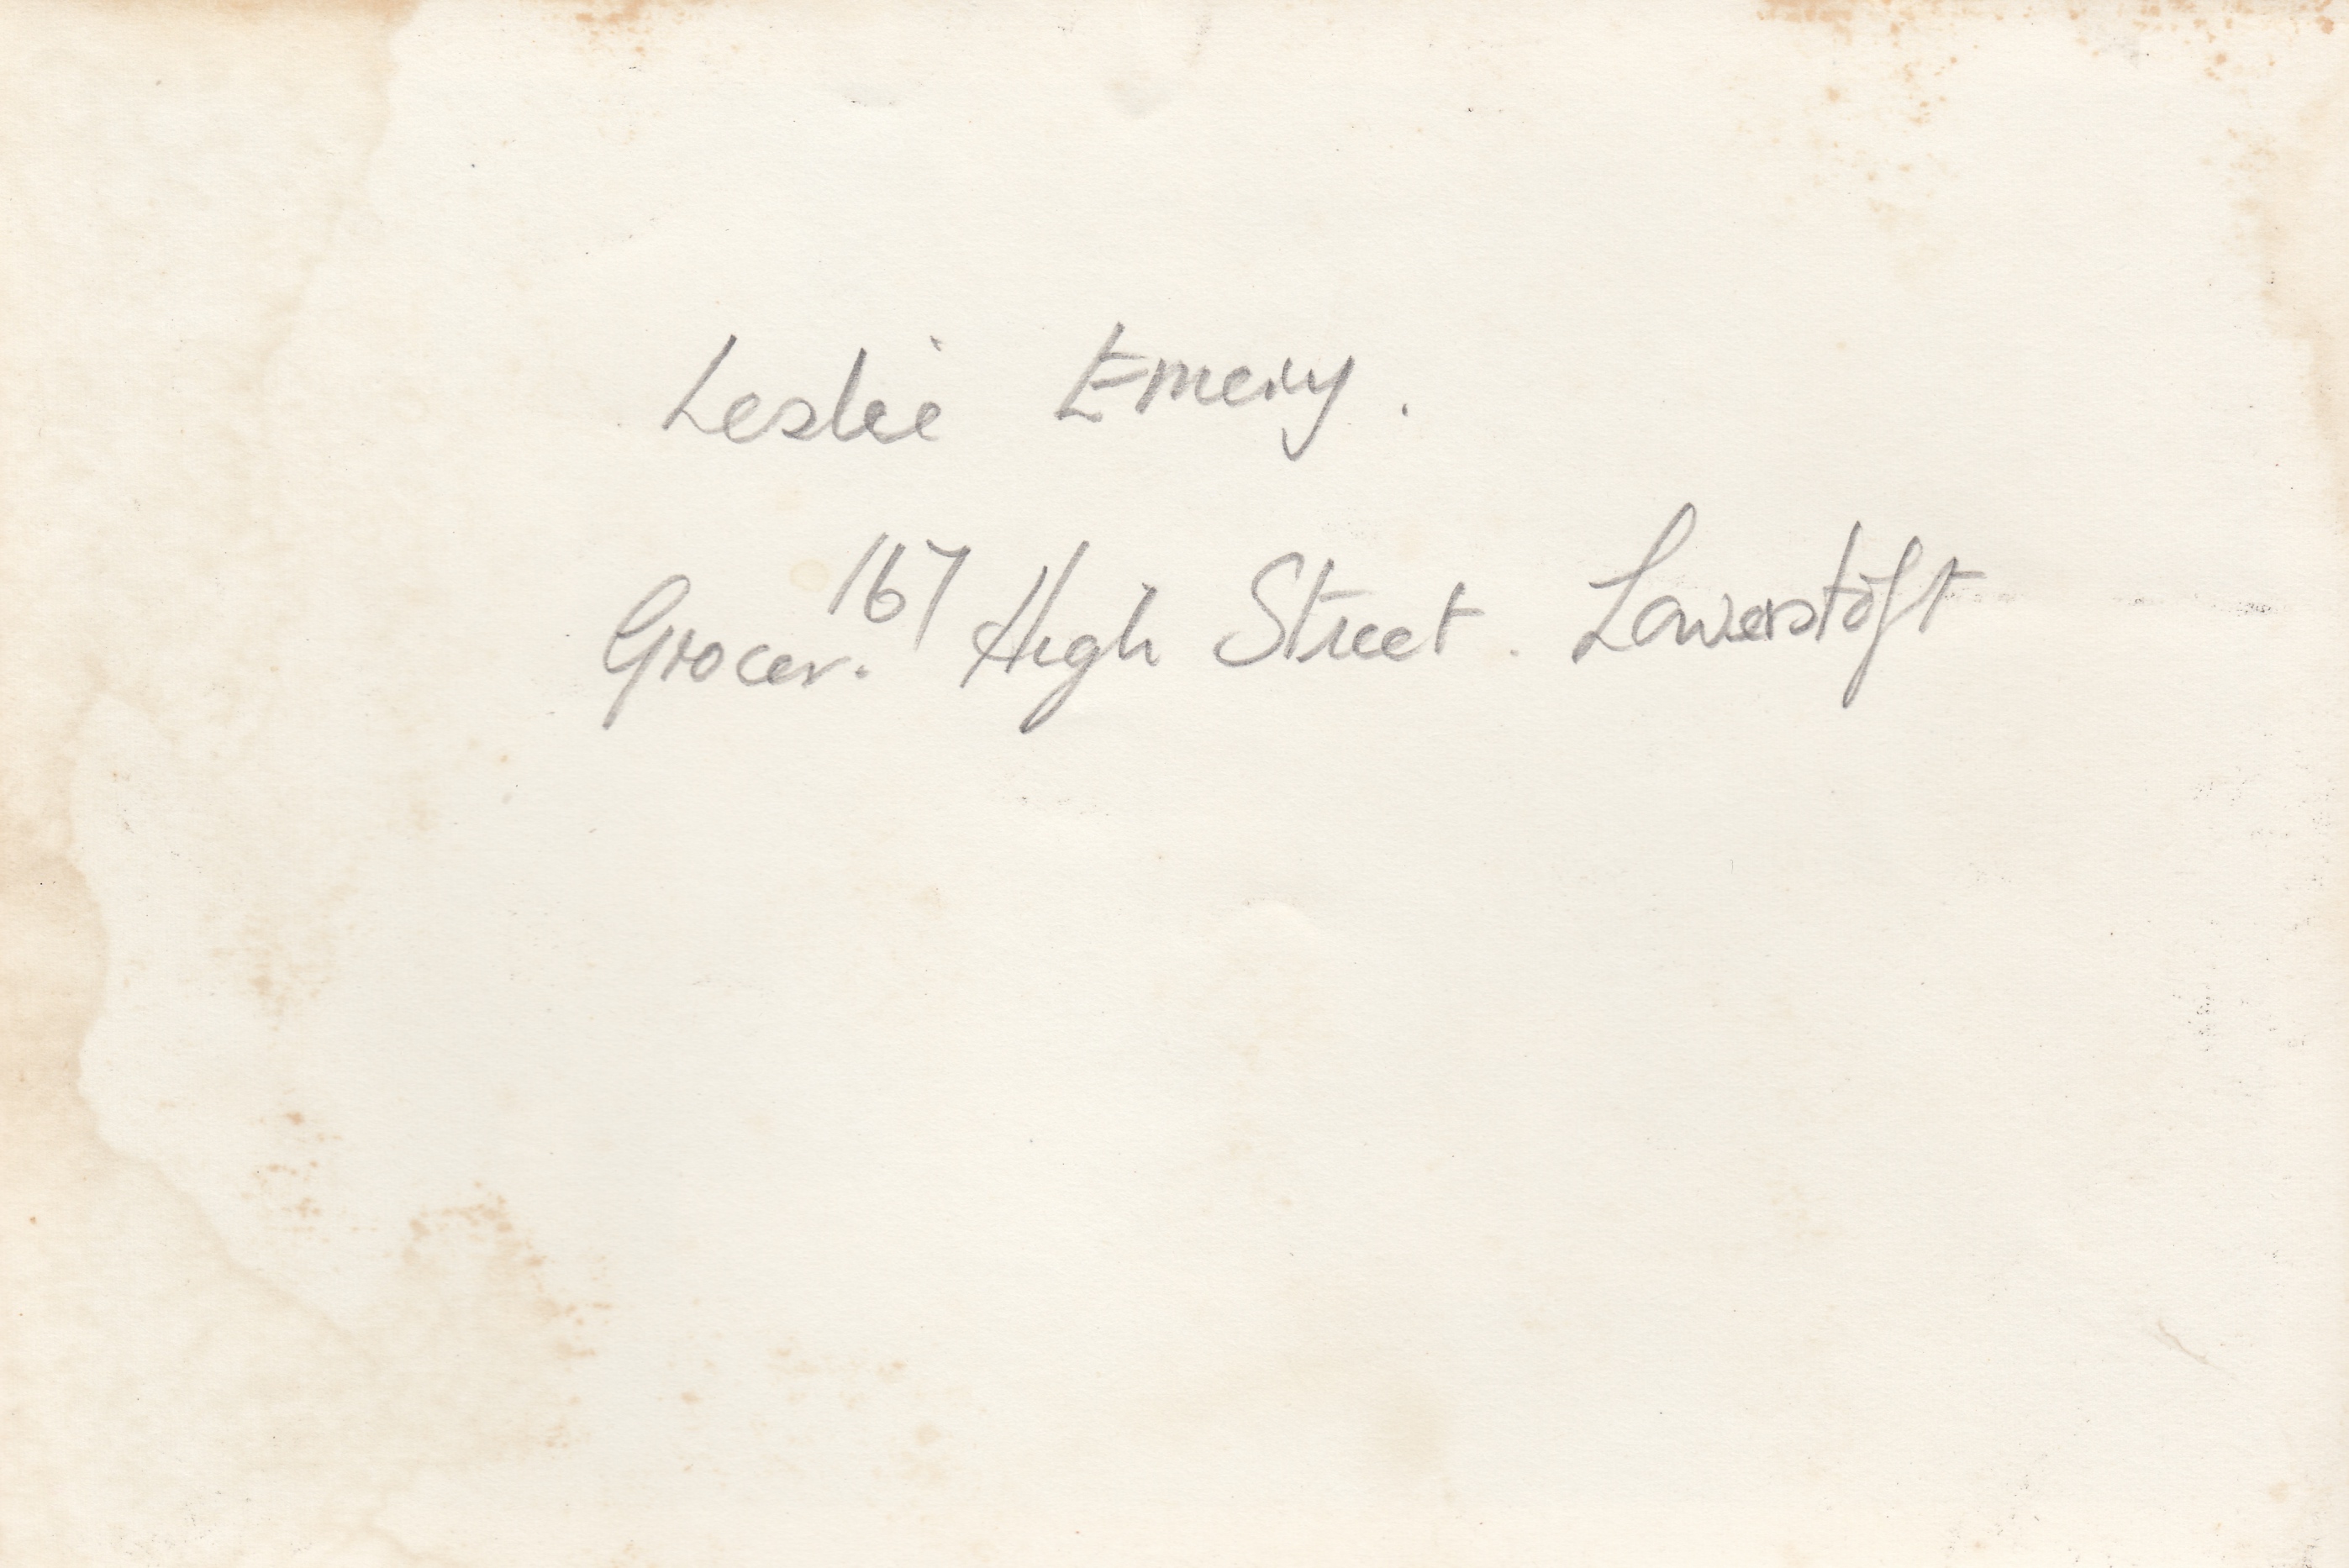 Leslie Emery.
Grocer. 167 High Street. Lowerstoft